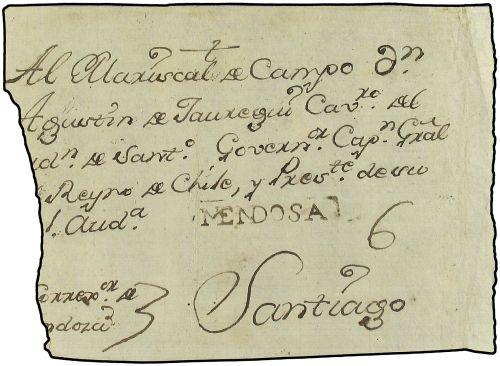 Al Mariscal de Campo Dⁿ
Agustin de Jauregui Cavᵣᵒ del
ordⁿ. de Santᵒ. Governᵒʳ Capⁿ Gral
Reyno de Chile, y Presᵗᵉ de su
l. Audᵃ
MENDOSA
6
Correxᵒʳ de
Mendoza
Santiago